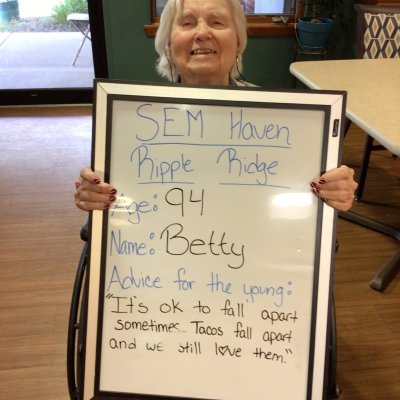 SEM Haven
Ripple Ridge
Age: 94
Name: Betty
Advice for the young:
"It's ok to fall apart
sometimes... Tacos fall apart
and we still l♥ve them."